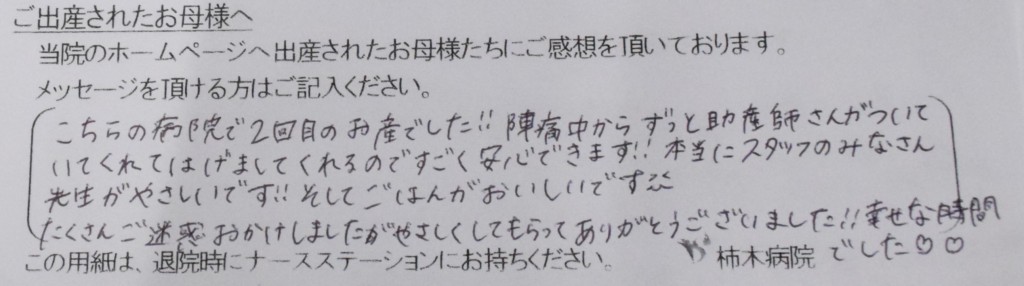 ご出産されたお母様へ
当院のホームページへ出産されたお母様たちにご感想を頂いております。
メッセージを頂ける方はご記入ください。
こちらの病院で2回目のお産でした!! 陣痛中からずっと助産師さんがついて
いてくれてはげましてくれるのですごく安心できます!! 本当にスタッフのみなさん
先生がやさしいです!! そしてごはんがおいしいです
たくさんご迷惑おかけしましたがやさしくしてもらってありがとうございました!! 幸せな時間
でした♡♡
この用紙は、退院時にナースステーションにお持ちください。 柿木病院